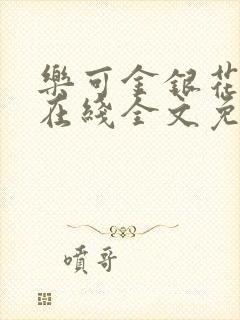 樂可金銀花
在綫全文免
噴哥